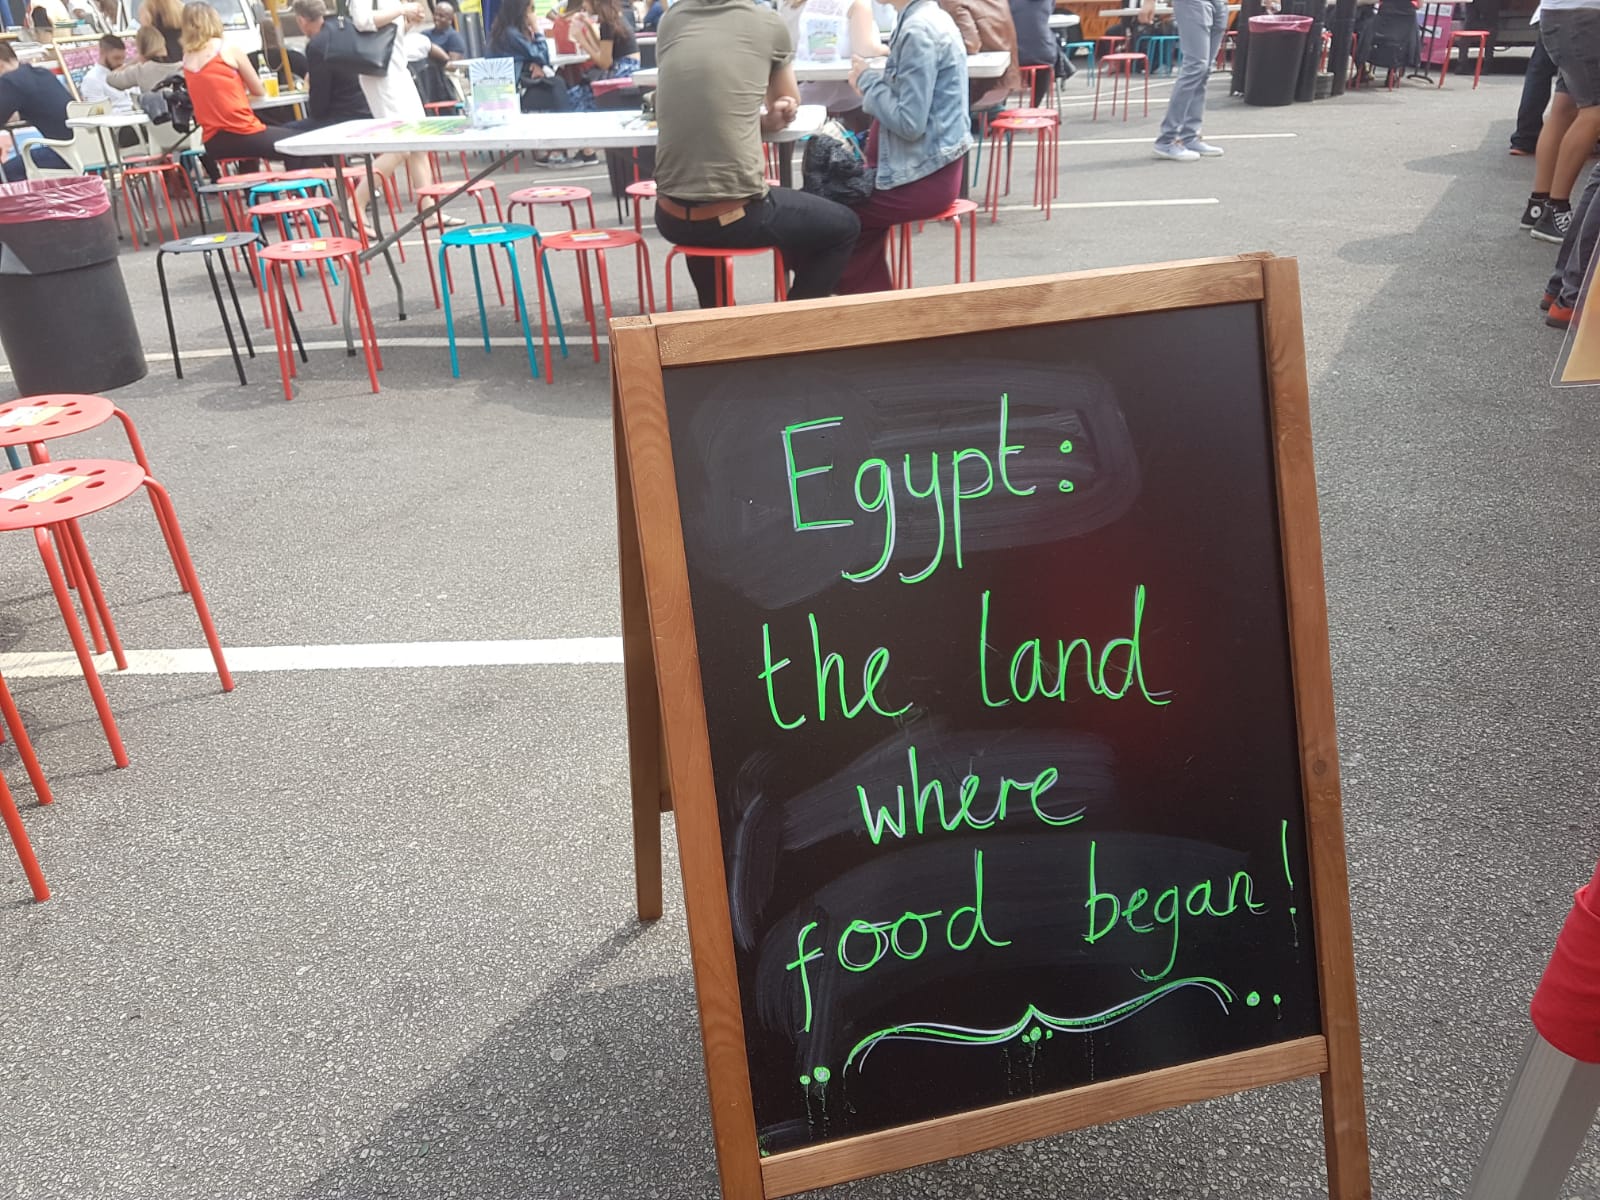 Egypt:
the land
where
food began!